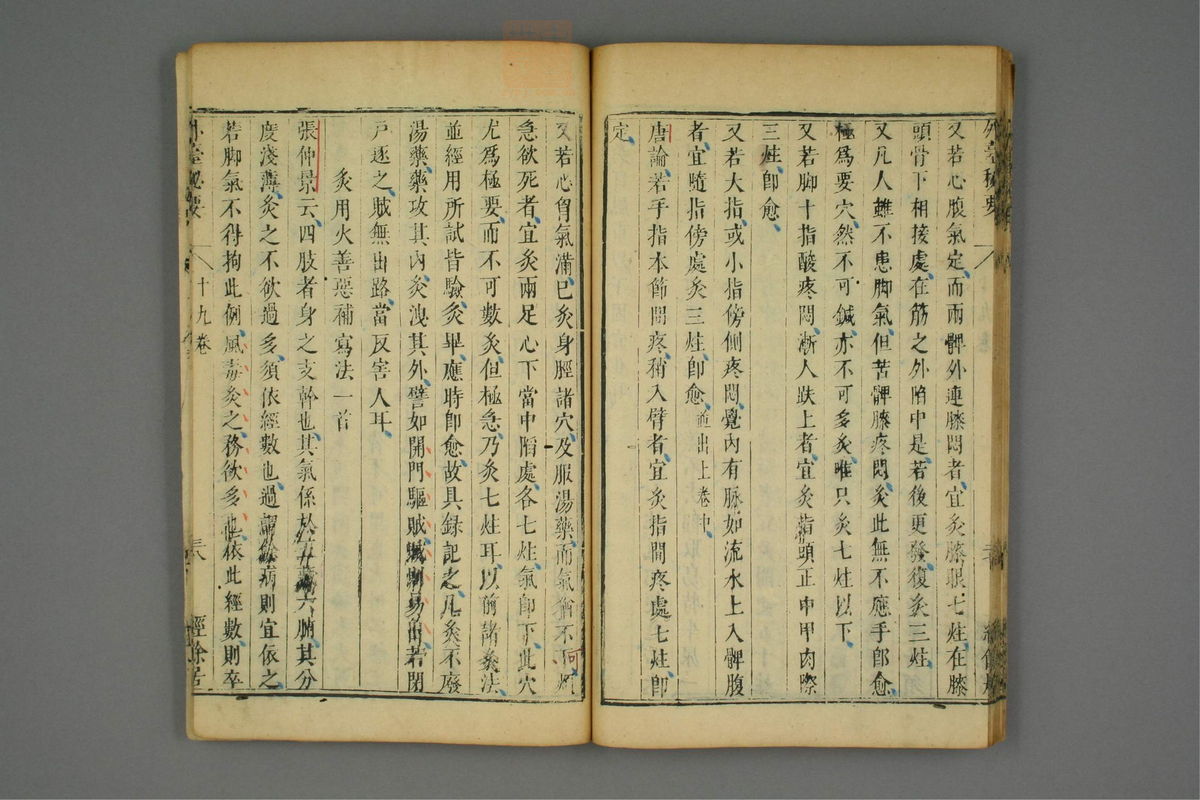 又若心腹氣定而兩髀外連膝悶者宜灸膝眼七炷在膝
頭骨下相接處在筋之外陷中是若後更發復灸三炷
又凡人雖不患脚氣但苦髀膝疼悶灸此無不應手卽愈
極爲要穴然不可鍼亦不可多灸唯只灸七炷以下
又若脚十指酸疼悶漸入趺上者宜灸指頭正中甲肉際
三炷卽愈
又若大指或小指傍側疼悶覺內有脉如流水上入髀腹
者宜隨指傍處灸三炷卽愈並出上卷中
唐論若手指本節間疼稍入臂者宜灸指間疼處七炷卽
定
又若心胷氣滿已灸身脛諸穴及服湯藥而氣猶不下
急欲死者宜灸兩足心下當中陷處各七炷氣卽下此穴
尤爲極要而不可數灸但極急乃灸七炷耳以前諸灸法
並經用所試皆驗灸畢應時卽愈故具錄記之凡灸不廢
湯藥藥攻其內灸洩其外譬如開門驅賊賊則易出若閉
戸逐之賊無出路當反害人耳
灸用火善惡補寫法一首
張仲景云四肢者身之支幹也其氣係於五藏六腑其分
度淺薄灸之不欲過多須依經數也過謂餘病則宜依之
若脚氣不得拘此例風毒灸之務欲多也依此經數則卒
外臺秘要
十九卷
經餘居